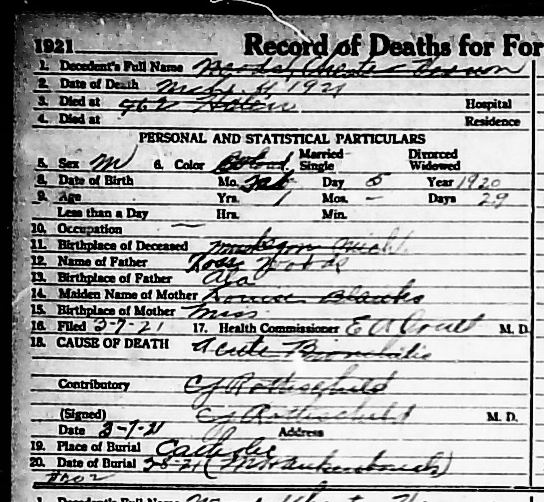 1921 Record of Deaths for For
1. Decedent's Full Name Woods, Chester Brown
2. Date of Death 1921
3. Died at 962 Hospital
4. Died at Residence
PERSONAL AND STATISTICAL PARTICULARS
5. Sex M 6. Color Married Single Divorced Widowed
8. Date of Birth Mo. Feb Day 5 Year 1920
9. Age Yrs. 1 Mos. — Days 29
Less than a Day Hrs. Min.
10. Occupation —
11. Birthplace of Deceased Muskegon Mich.
12. Name of Father Ross Woods
13. Birthplace of Father Ala
14. Maiden Name of Mother Louise Blanks
15. Birthplace of Mother Miss
16. Filed 3-7-21 17. Health Commissioner E A M. D.
18. CAUSE OF DEATH Acute Bronchitis
Contributory CJ Rottschild
(Signed) CJ Rottschild M. D.
Date 3-7-21 Address
19. Place of Burial Catholic
20. Date of Burial
1. Decedent's Full Name